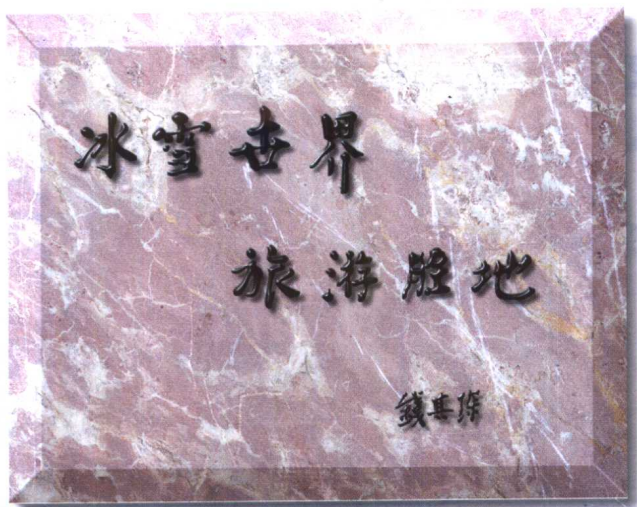 冰雪世界
旅游胜地
錢其琛